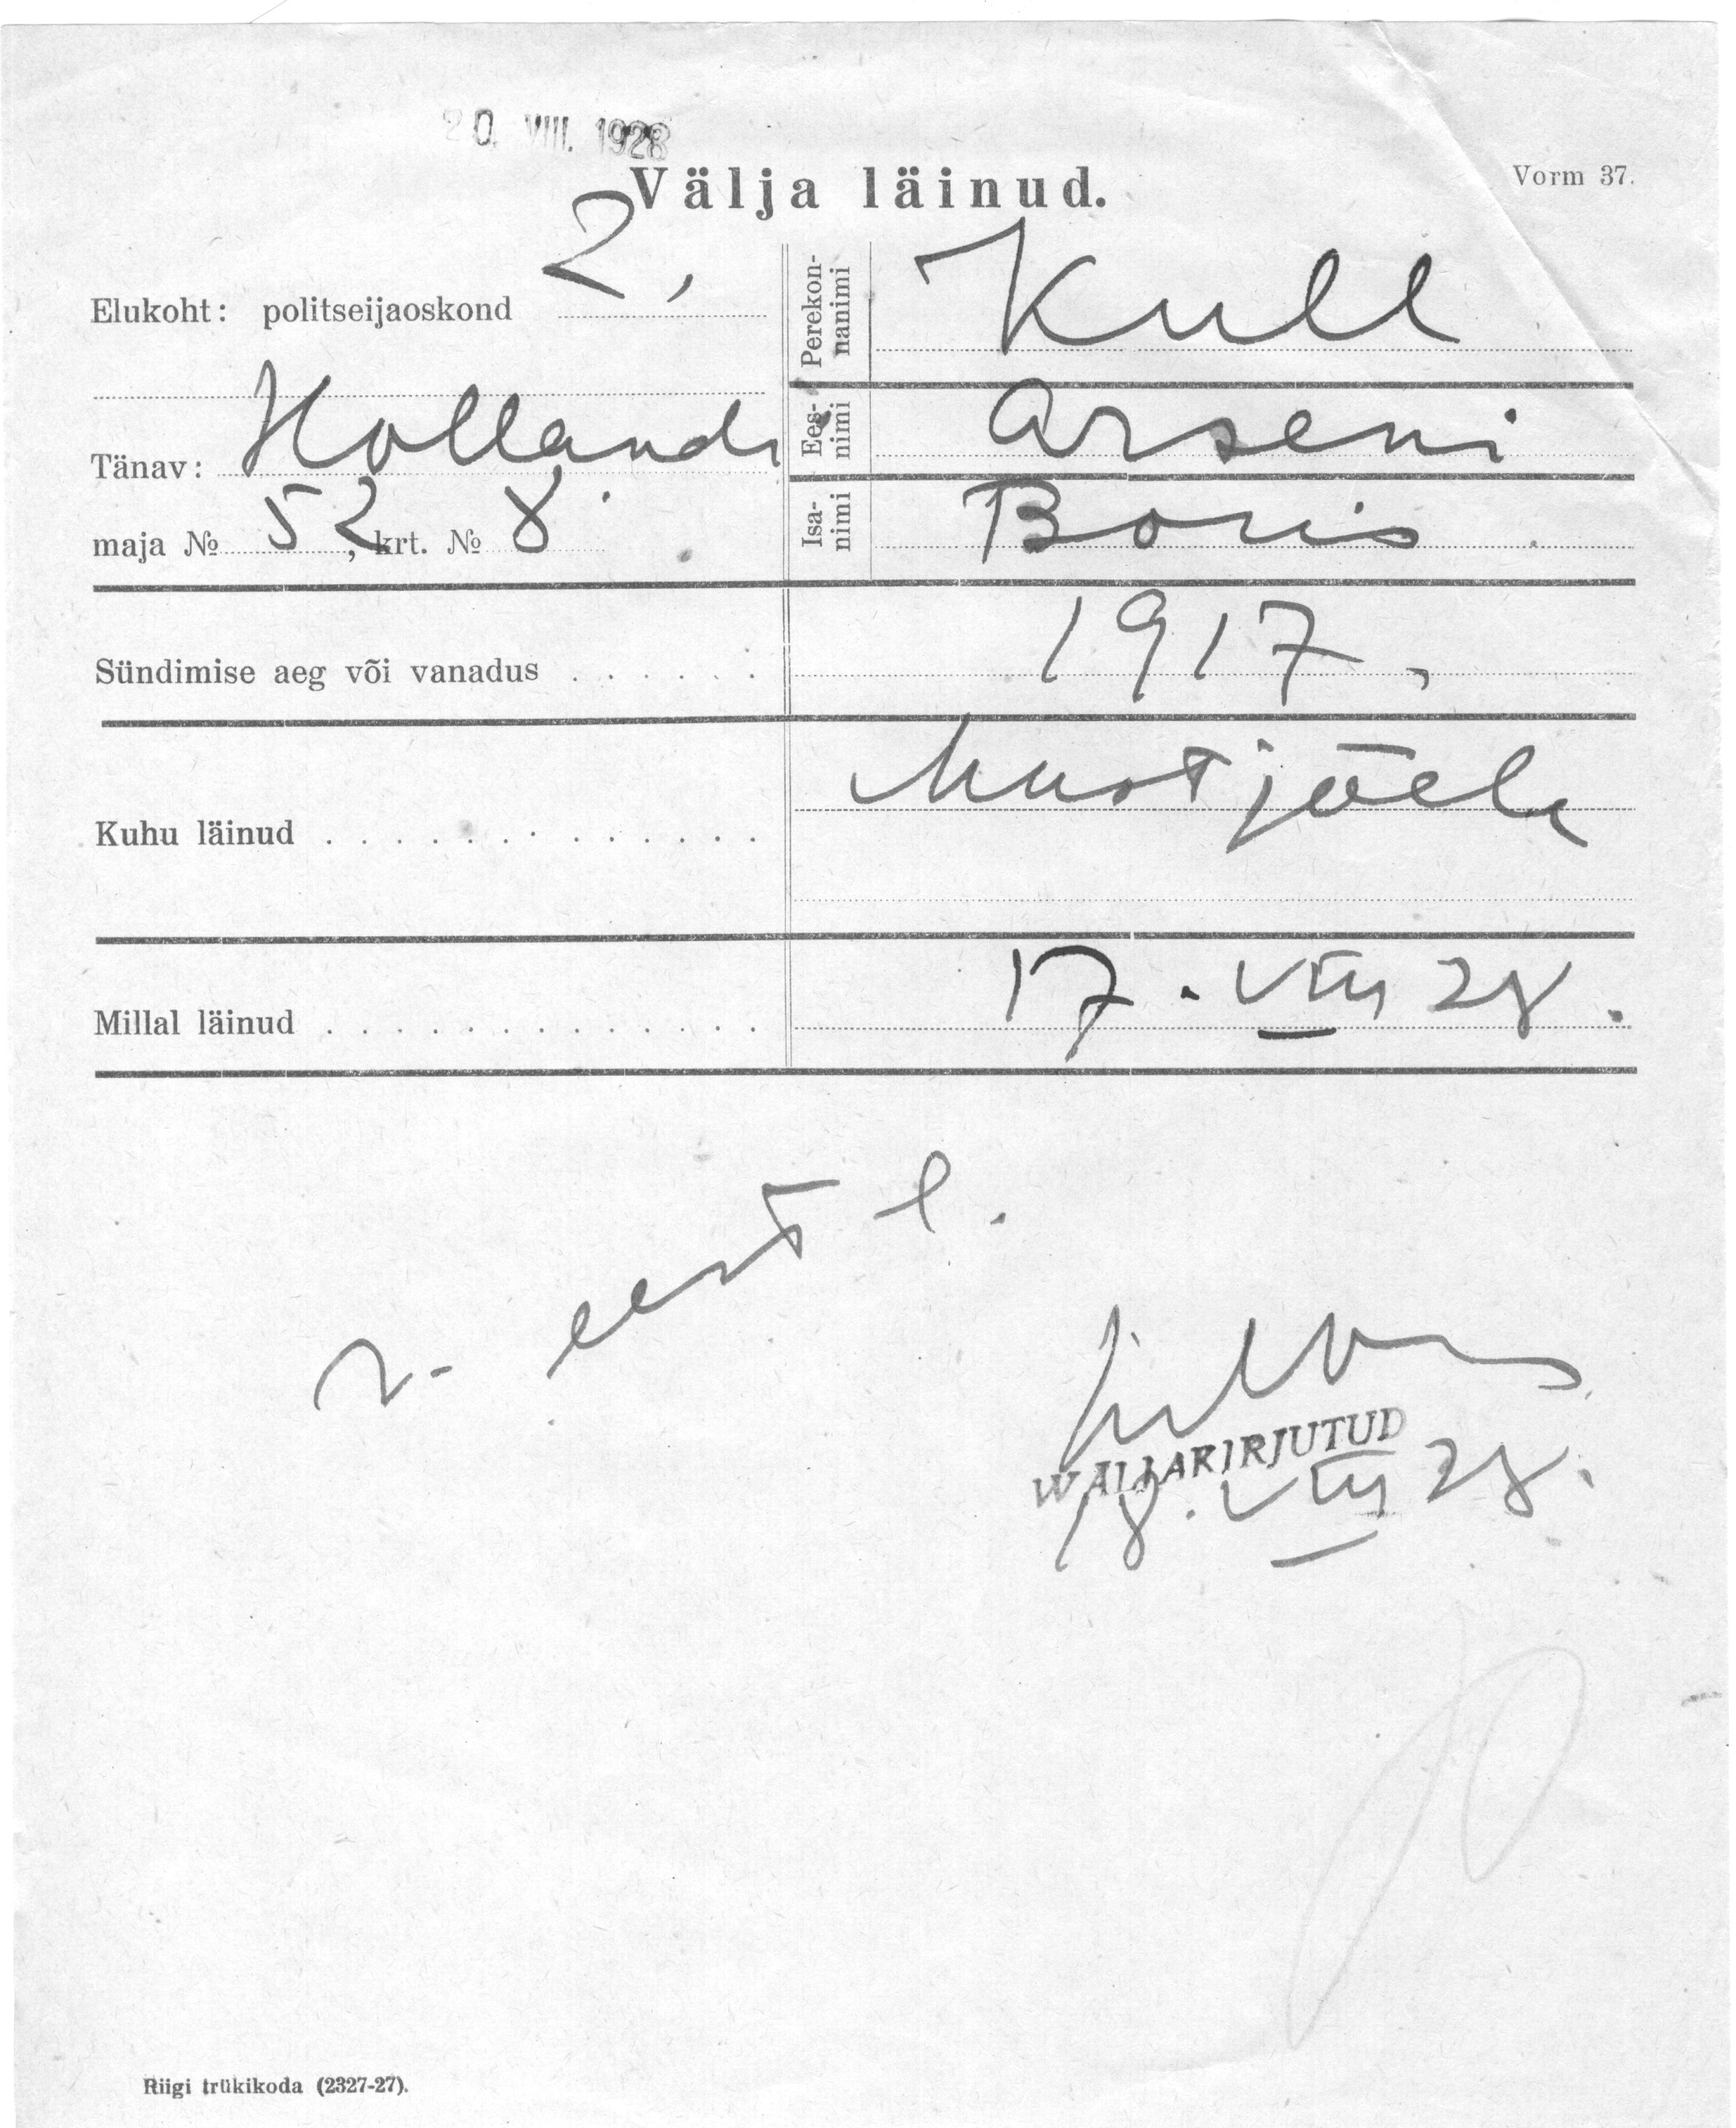 20. VIII. 1928
Välja läinud.
Vorm 37.
Elukoht: politseijaoskond 2,
Tänav: Hollandi
maja № 52, krt. № 8.
Perekonnanimi Kull
Eesnimi Arseni
Isanimi Boris
Sündimise aeg või vanadus . . . . . . 1917.
Kuhu läinud . . . . . . . . . . . . . Mustjõele
Millal läinud . . . . . . . . . . . . . 17. VIII 28.
eest
WÄLJAKIRJUTUD
18. VIII 28.
Riigi trükikoda (2327-27).